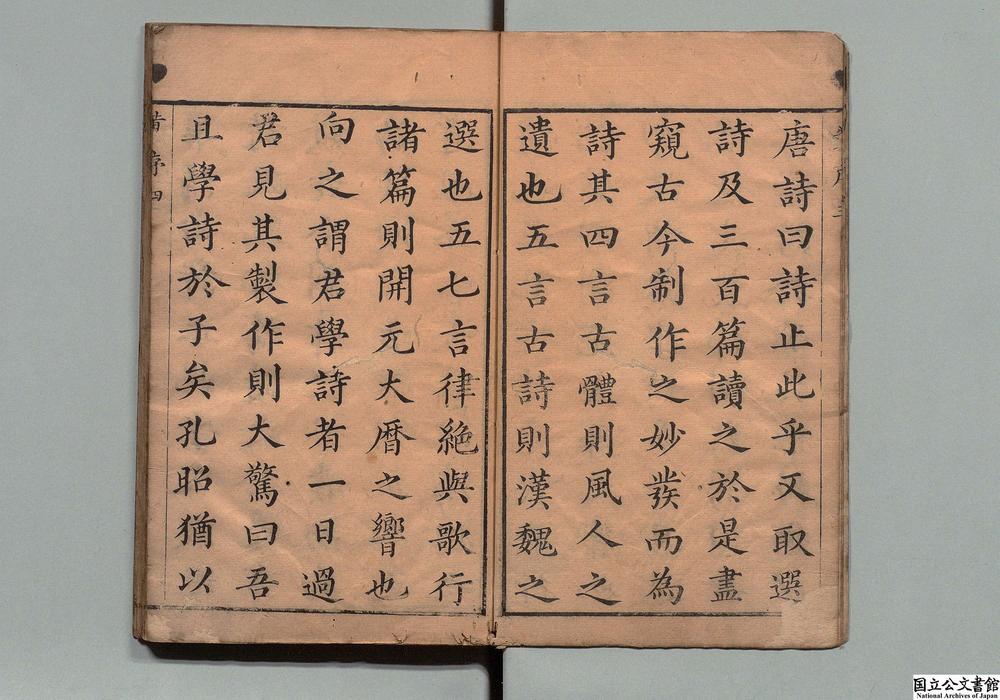 唐詩曰詩止此乎又取選
詩及三百篇讀之於是盡
窺古今制作之妙發而為
詩其四言古體則風人之
遺也五言古詩則漢魏之
選也五七言律絶與歌行
諸篇則開元大曆之響也
向之謂君學詩者一日過
君見其製作則大驚曰吾
且學詩於子矣孔昭猶以
序四
国立公文書館
National Archives of Japan